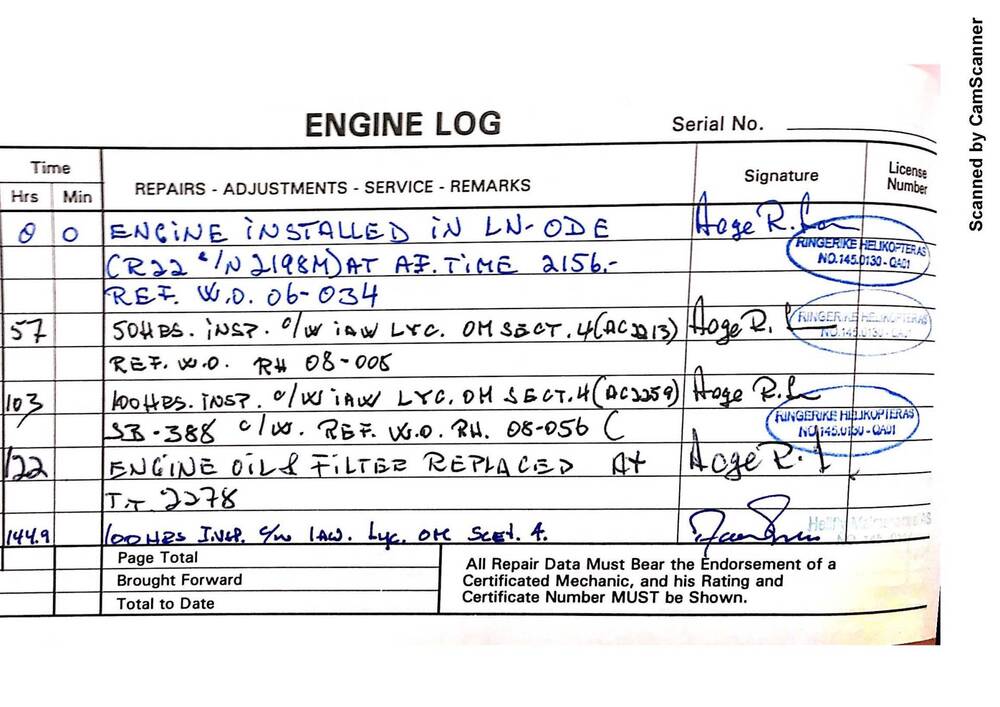 ENGINE LOG
Serial No.
Time
Hrs Min
REPAIRS - ADJUSTMENTS - SERVICE - REMARKS
Signature
License Number
0 0 ENGINE INSTALLED IN LN-ODE
(R22 S/N 2198M) AT AF. TIME 2156.-
REF. W.O. 06-034
RINGERIKE HELIKOPTER AS
NO.145.0130 - QA01
57 50HRS. INSP. C/W IAW LYC. OM SECT. 4 (AC2213)
REF. W.O. RH 08-005
RINGERIKE HELIKOPTER AS
NO.145.0130 - QA01
103 100HRS. INSP. C/W IAW LYC. OM SECT. 4 (AC2259)
SB-388 C/W. REF. W.O. RH. 08-056 C
RINGERIKE HELIKOPTER AS
NO.145.0130 - QA01
122 ENGINE OIL & FILTER REPLACED AT
T.T. 2278
144.9 100HRS INSP. C/W IAW. Lyc. OM SECT. 4.
Page Total
Brought Forward
Total to Date
All Repair Data Must Bear the Endorsement of a
Certificated Mechanic, and his Rating and
Certificate Number MUST be Shown.
Scanned by CamScanner